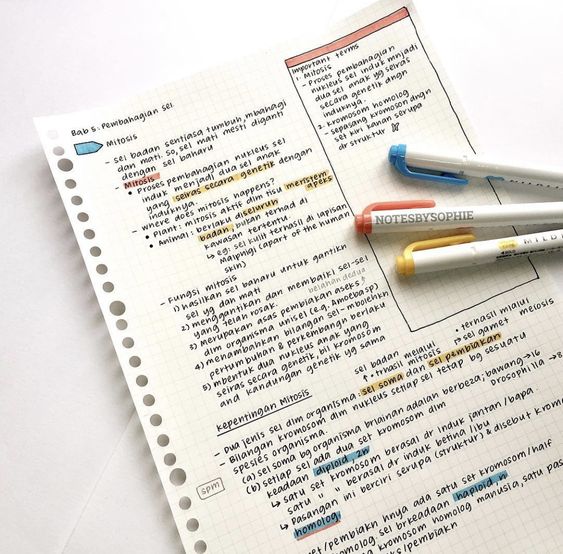 Bab 5: Pembahagian sel
Mitosis
- sel badan sentiasa tumbuh, mbahagi
dan mati. so, sel mati mesti diganti
dengan sel baharu
Mitosis
• Proses pembahagian nukleus sel
induk menjadi dua sel anak
yang seiras secara genetik dengan
induknya.
- where does mitosis happens?
• Plant: mitosis aktif dlm tisu meristem
apeks
• Animal: berlaku di seluruh
badan, bukan terhad di
kawasan tertentu.
↳ eg: sel kulit terhasil di lapisan
Malpighi (a part of the human
skin)
- Fungsi mitosis
1) hasilkan sel baharu untuk gantikn
sel yg dah mati
2) menggantikan dan membaiki sel-sel
yang telah rosak.
belahan dedua
3) Merupakan asas pembiakan aseks
dlm organisma unisel (e.g; Amoeba sp)
4) menambahkan bilangan sel-mbolehkn
pertumbuhan & perkembangn berlaku
5) mbentuk dua nukleus anak yang
seiras secara genetik, bil kromosom
and kandungan genetik yg sama
Kepentingan Mitosis
sel badan melalui
mitosis
• terhasil mlalui
meiosis
• sel gamet
- Dua jenis sel dlm organisma: sel soma dan sel pembiakan
- Bilangan kromosom dlm nukleus setiap sel tetap bg sesuatu
spesies organisma.
(a) sel soma bg organisma brlainan adalah berbeza; bawang→16
Drosophila → 8
(b) setiap sel ada dua set kromosom dlm
keadaan diploid, 2n
↳ satu set kromosom berasal dr induk jantan / bapa
satu " " berasal dr induk betina / ibu
↳ Pasangan ini berciri serupa (struktur) & disebut krom
homolog
spm
pembiakn hnya ada satu set kromosom/half
sel brkeadaan haploid, n
kromosom homolog manusia, satu pas
pembiakn
Important terms
1. Mitosis
- Proses pembahagian
nukleus sel induk mnjadi
dua sel anak yg seiras
secara genetik dngn
induknya.
2. kromosom homolog
- sepasang kromosom dngn
set kiri kanan serupa
dr struktur
NOTESBYSOPHIE
MILDL